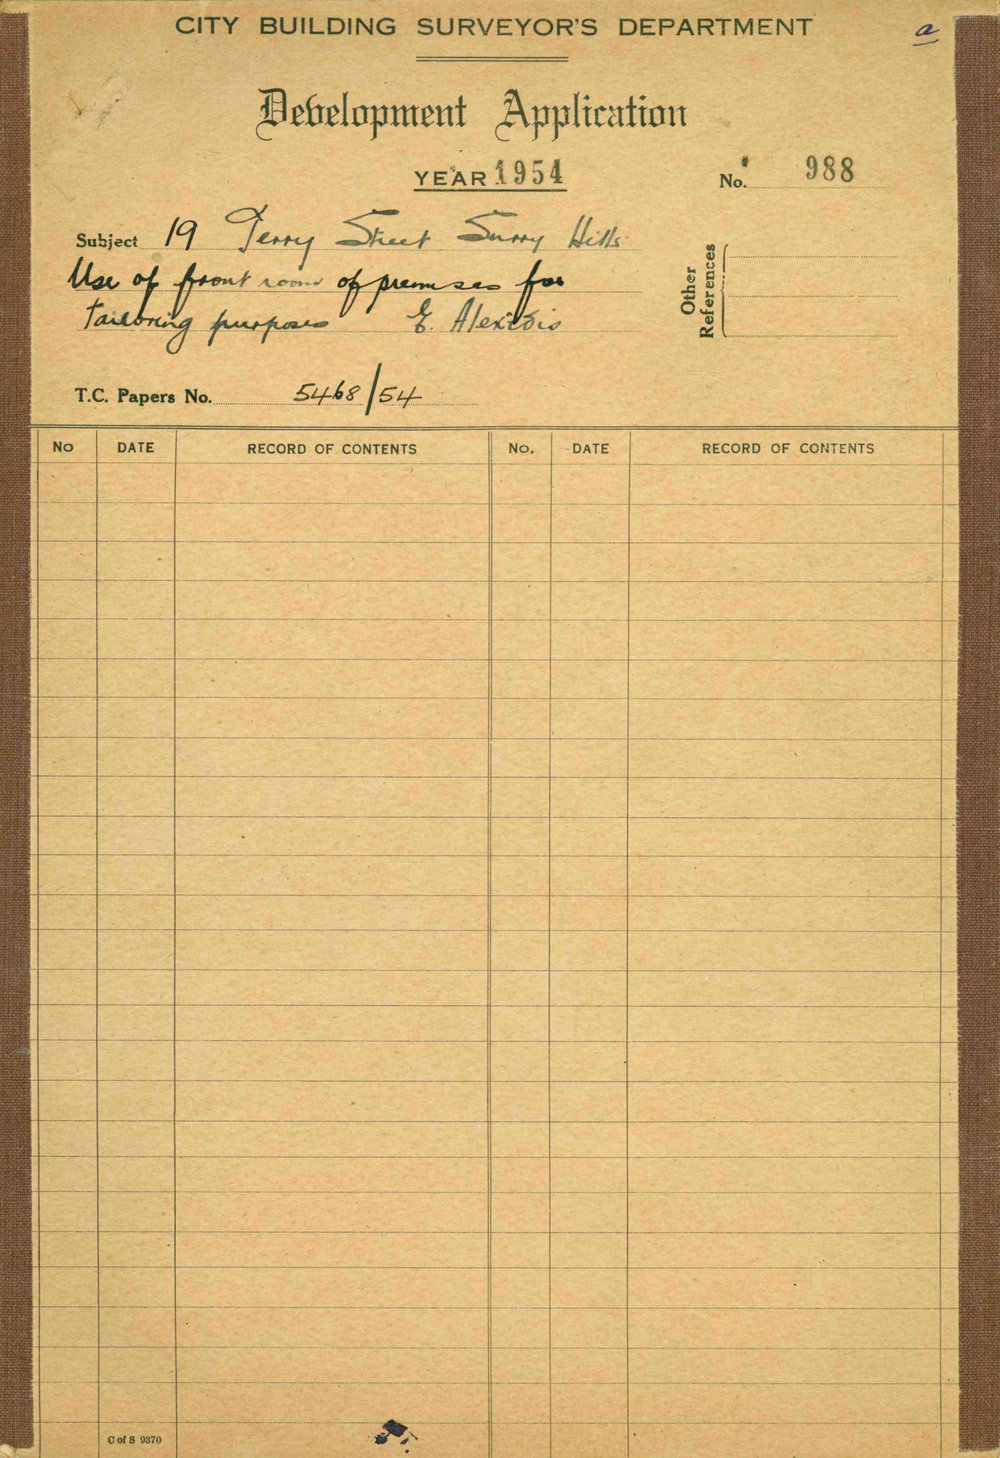 CITY BUILDING SURVEYOR'S DEPARTMENT
a
Development Application
YEAR 1954
No. 988
Subject 19 Terry Street Surry Hills
Use of front room of premises for
tailoring purposes E. Alexidis
Other References
T.C. Papers No. 5468/54
No DATE RECORD OF CONTENTS No. DATE RECORD OF CONTENTS
C of S 9370